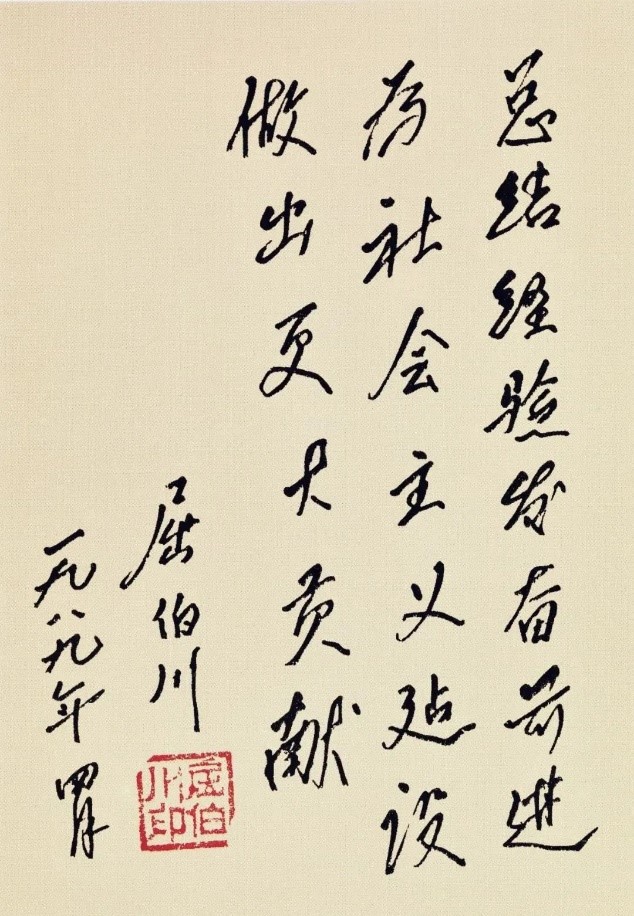 总结经验发奋前进
为社会主义建设
做出更大贡献
屈伯川
一九八九年四月
屈伯川印